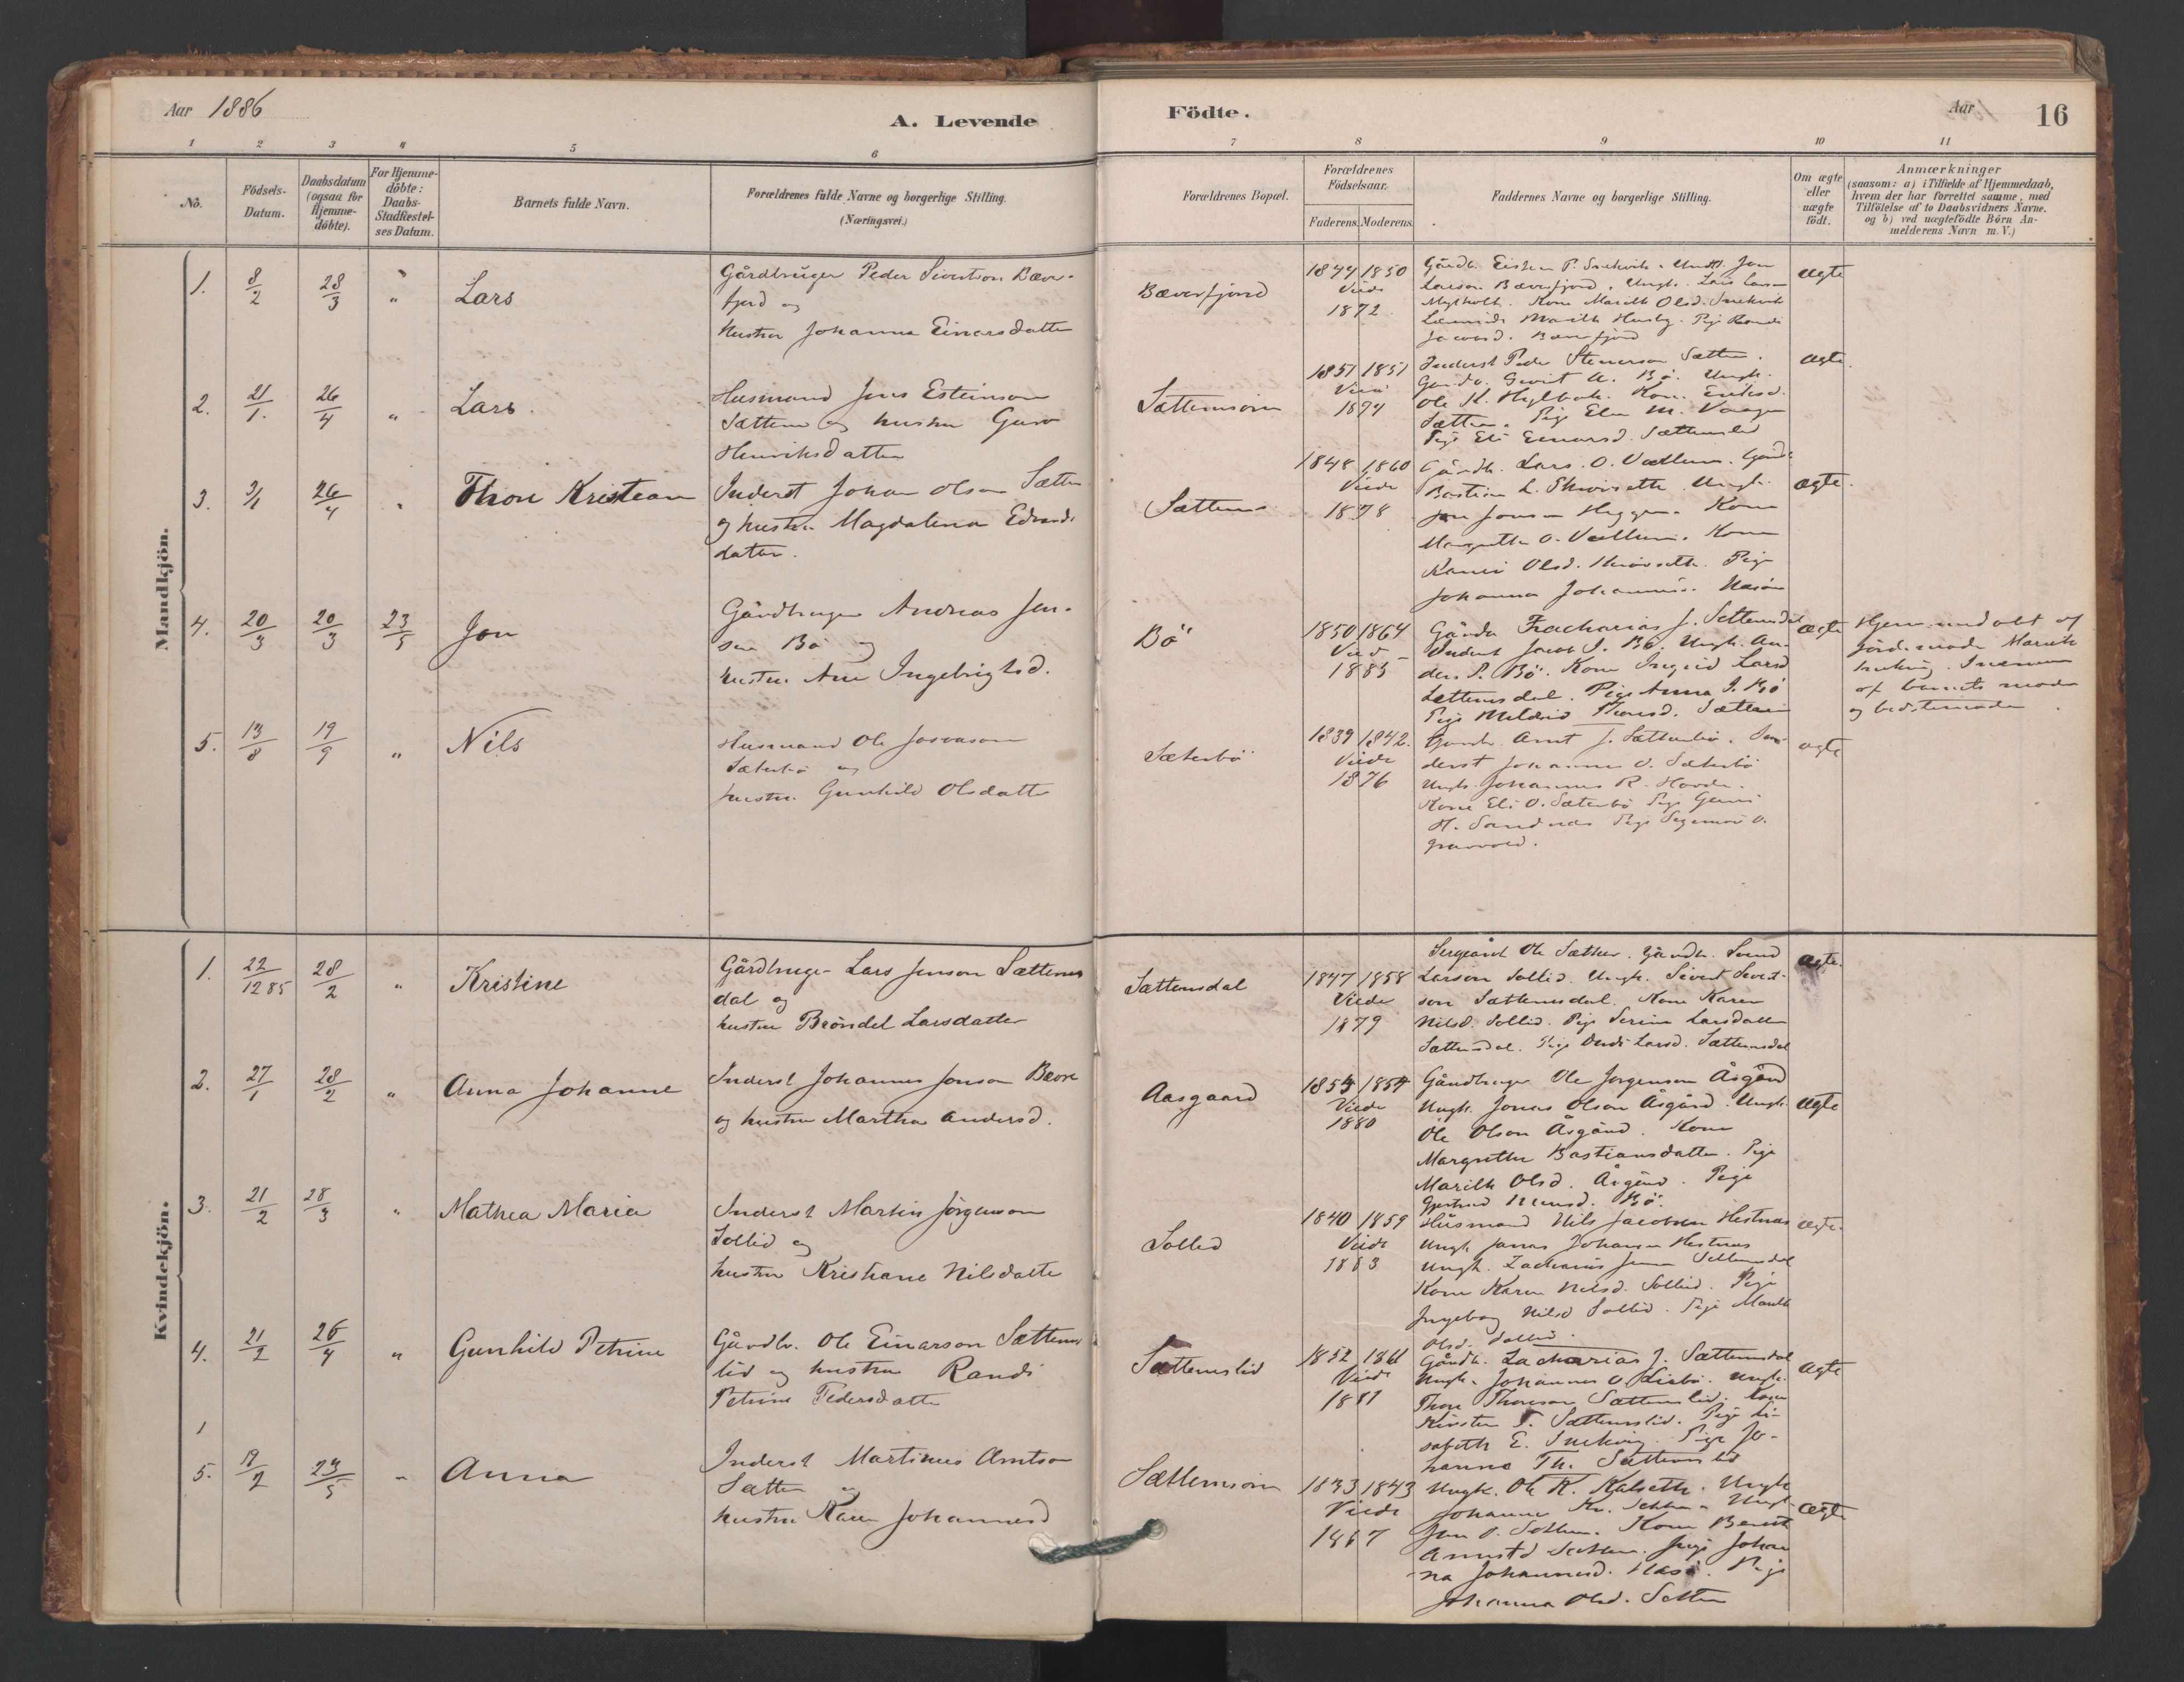 Aar 1886
A. Levende
Födte.
Aar
16
1 2 3 4 5 6 7 8 9 10 11
No.
Födsels-
Datum.
Daabsdatum
(ogsaa for
Hjemme-
döbte).
For Hjemme-
döbte:
Daabs-
Stadfæstel-
ses Datum.
Barnets fulde Navn.
Forældrenes fulde Navne og borgerlige Stilling.
(Næringsvei.)
Forældrenes Bopæl.
Forældrenes
Födselsaar.
Faderens. Moderens.
Faddernes Navne og borgerlige Stilling.
Om ægte
eller
uægte
födt.
Anmærkninger
(saasom: a) i Tilfælde af Hjemmedaab,
hvem der har forrettet samme, med
Tilföielse af to Daabsvidners Navne.
og b) ved uægtefödte Börn An-
melderens Navn m. V.)
Mandkjön.
1. 8/2 28/3 " Lars
Gårdbruger Peder Sivertson Bæver-
fjord og
hustru Johanna Einarsdatter
Bæverfjord
1844 1850
Viede
1872
Larson Bæverfjord, Ungk. Lars
Kone Marith Olsd.
Marith Husby. Pige Randi
Bæverfjord
ægte
2. 21/1. 26/4 " Lars
Husmand Jens Esteinson
Sættem og hustru Guro
Henriksdatter
Sættemsöien
1851 1851
Viede
1874
Inderst Peder Stenerson Sættem.
Gårdb. Sivert A. Bö. Ungk.
Ole K. Kone Eriksd.
Sættem. Pige Elen M.
Pige Eli Einarsd. Sættemslid
ægte.
3. 3/1 26/4 " Thore Kristian
Inderst Johan Olson Sættem
og hustru Magdalena Edvards
datter.
Sættem
1848 1860
Viede
1878
Gårdb. Lars O. Gårdb
Bastian L. Ungk.
Jonson Kone
Margrethe O. Kone
Karen Olsd. Pige
Johanna
ægte.
4. 20/3 20/3 23/5 Jon
Gårdbruger Andreas Jen-
sen Bö og
hustru Ane Ingebrigtsd.
Bö
1850 1864
Viede
1885
Gårdb Zacharias J. Settemsdal
Inderst Jacob J. Bö. Ungk. An-
ders P. Bö. Kone Ingrid Larsd
Settemsdal. Pige Anna J. Bö
Pige Mildrid Thoresd. Sættem
ægte
Hjemmedöbt af
jordemoder Marith
af barnets moder
og bedstemoder.
5. 13/8 19/9 " Nils
Husmand Ole
Sæterbö og
hustru Gunhild Olsdatter
Sæterbö
1839 1842.
Viede
1876
Gårdb. Arnt J. Sætterbö. In-
derst Johannes O. Sæterbö
Ungk. Johannes R. Hovde.
Kone Eli O. Sæterbö Pige
H. Sandnes Pige O.
ægte
Kvindekjön.
1. 22/12 85 28/2 " Kristine
Gårdbruger Lars Jenson Sættems
dal og
hustru Bröndel Larsdatter
Sættemsdal
1847 1858
Viede
1879
Sergeant Ole Sæther. Gårdb.
Larson Sollid. Ungk. Sivert Sivert-
son Sættemsdal. Kone Karen
Nilsd. Sollid. Pige Serine Larsdatter
Sættemsdal. Pige Larsd. Sættemsdal
ægte.
2. 27/1 28/2 " Anna Johanne
Inderst Johannes Jonson Bæver
og hustru Martha Andersd.
Aasgaard
1854 1854
Viede
1880
Gårdbruger Ole Jörgenson Åsgård
Ungk. Jonas Olson Åsgård. Ungk.
Ole Olson Åsgård. Kone
Margrethe Bastiansdatter. Pige
Marith Olsd. Åsgård. Pige
Gjertrud Bö.
ægte
3. 21/2 28/3 " Mathea Maria
Inderst Martin Jörgenson
Sollid og
hustru Kristiane Nilsdatter
Sollid
1840 1859
Viede
1883
Husmand Nils Jacobson Hestnes
Ungk. Jonas Johanson Hestnes
Ungk. Zacharias Jenson Settemsdal
Kone Karen Nilsd. Sollid. Pige
Ingeborg Nilsd Sollid. Pige Marith
Olsd. Sollid.
ægte.
4. 21/2 26/4 " Gunhild Petrine
Gårdbr. Ole Einarson Sættems
lid og hustru Randi
Petrine Pedersdatter
Sættemslid
1852 1861
Viede
1881
Gårdb. Zacharias J. Sættemsdal
Ungk. Johannes O. Ungk.
Thore Thoreson Sættemslid. Kone
Kirsten T. Sættemslid. Pige Li-
sabeth E. Pige Jo-
hanna Th. Sættemslid
ægte
5. 19/2 23/5 " Anna
Inderst Martinus Arntson
Sættem og
hustru Karen Johannesd
Sættemsöien
1843 1843
Viede
1867
Ungk. Ole K. Kalseth. Ungk
Johannes Kr. Settem. Ungk
Jon O. Settem. Kone Bereth
Arntsd Settem. Pige Johan
na Johannesd. Pige
Johanna Olsd. Settem
ægte